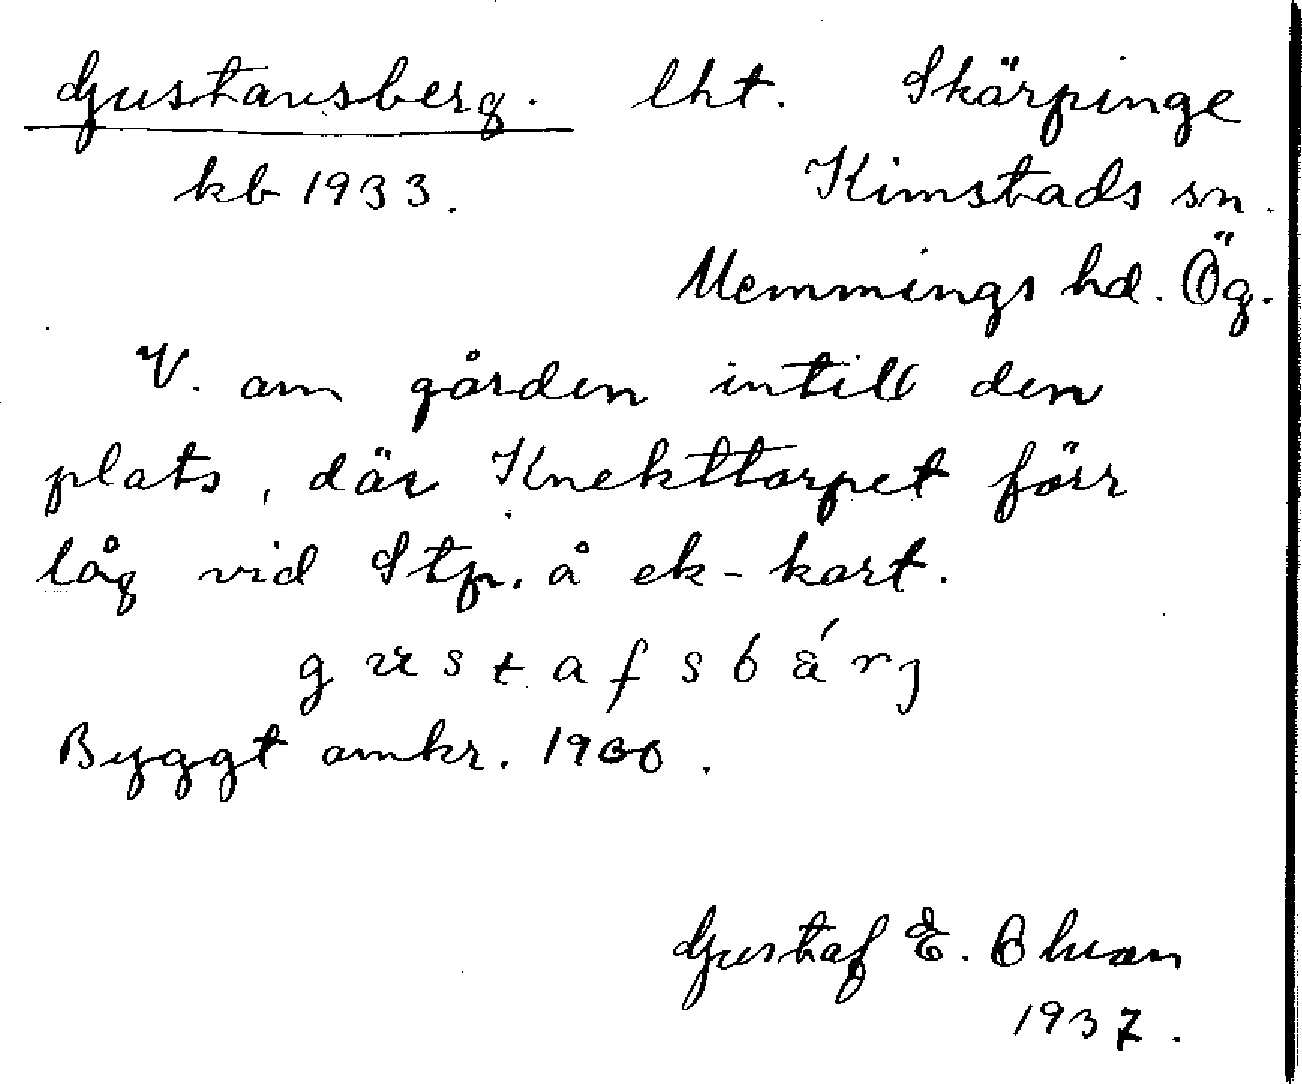 Gustavsberg. lht. Skärpinge
kb 1933. Kimstads sn.
Memmings hd. Ög.
V. om gården intill den
plats, där Knekttorpet förr
låg vid Stp. å ek-kart.
gustafsbä́rj
Byggt omkr. 1900.
Gustaf E.
1937.